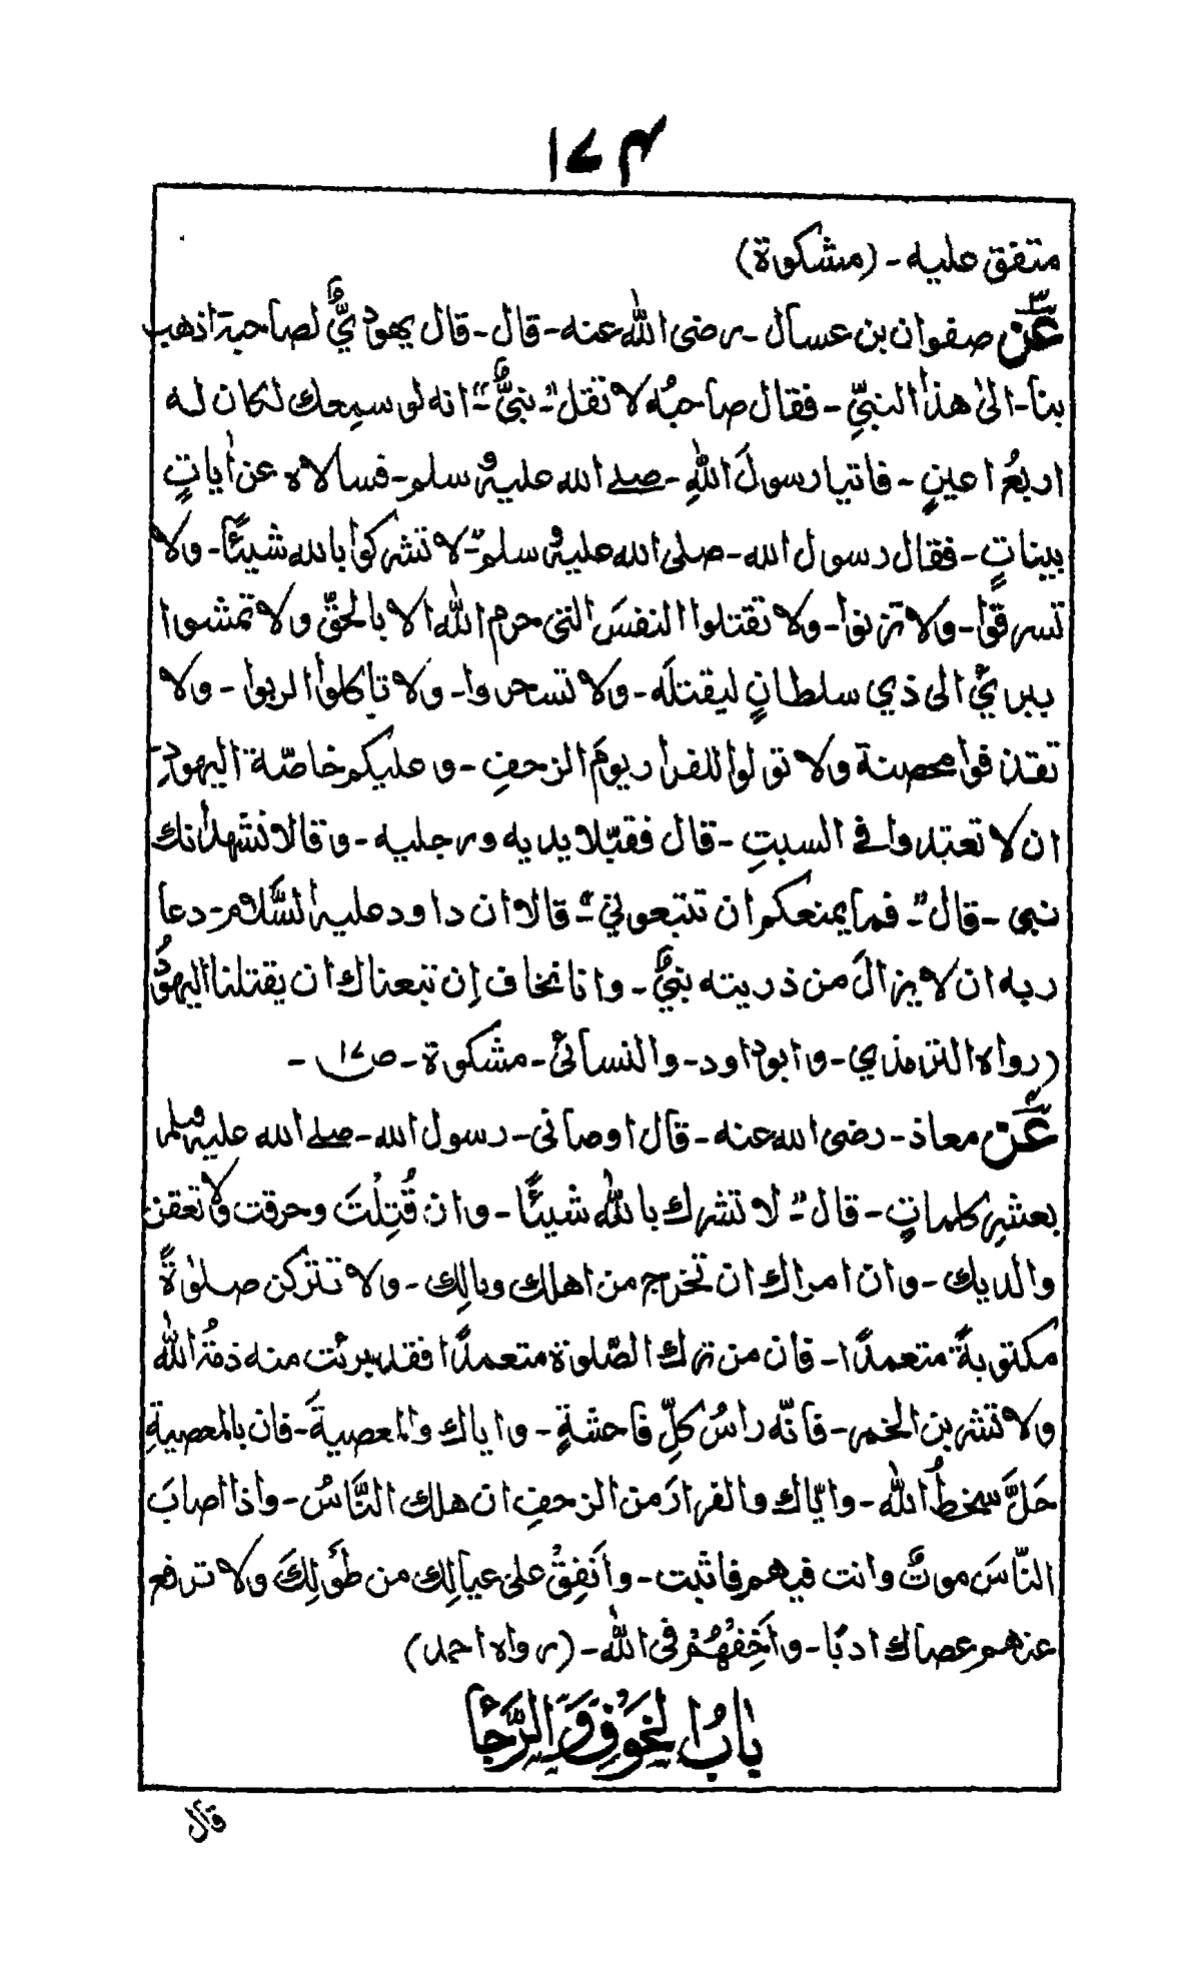 ۱۷۴
متفق علیه - (مشکوة)
عَن صفوان بن عسال - رضی الله عنه - قال - قال یهودیٌّ لصاحبة اذهب
بنا - الیٰ هذا النبیِّ - فقال صاحبُه لا تقل "- نبیٌّ "- انه لو سمعك لکان له
اربعُ اعینٍ - فاتیا رسولَ اللهِ - صلے الله علیه و سلم - فسالاه عن اٰیاتٍ
بیناتٍ - فقال رسول الله - صلی الله علیه و سلم "- لا تشرکوا بالله شیئًا - ولا
تسرقوا - ولا تزنوا - ولا تقتلوا النفسَ التی حرم الله الا بالحقّ ولا تمشوا
ببریٍٔ الی ذی سلطانٍ لیقتلَه - ولا تسحروا - ولا تاکلوا الربوا - ولا
تقذفوا محصنة ولا تولوا للفرار یومَ الزحفِ - و علیکم خاصّة الیهودِ
ان لا تعتدوا فی السبتِ - قال فقبّلا یدیه و رجلیه - و قالا نشهد انك
نبی - قال "- فما یمنعکم ان تتبعونی "- قالا ان داود علیه السَّلام - دعا
ربه ان لا یزالَ من ذریته نبیٌّ - وانا نخاف اِن تبعناك ان یقتلنا الیهودُ
(رواه الترمذی - و ابوداود - والنسائیٔ - مشکوة - ص۱۷ -
عَن معاذ - رضی الله عنه - قال اوصانی - رسول الله - صلے الله علیه وسلم
بعشرِ کلماتٍ - قال "- لا تشرك بالله شیئًا - وان قُتِلْتَ وحرقت ولا تعقن
والدیك - وان امراك ان تخرج من اهلك ومالِك - ولا تترکن صلٰوةً
مکتوبةً متعمدًا - فان من ترك الصّلوة متعمدًا فقد برئت منه ذمةُ الله
ولا تشربن الخمر - فانّه راسُ کلِّ فاحشةٍ - وایاك والمعصیةَ - فان بالمعصیةِ
حَلَّ سخطُ الله - وایّاك والفرارَ من الزحفِ ان هلك النَّاسُ - واذا اصابَ
النّاسَ موتٌ وانت فیهم فاثبت - وانْفِقْ علیٰ عیالِك من طَوْلِكَ ولا ترفع
عنهم عصاك ادبًا - واَخِفْهُمْ فی الله - (رواه احمد)
بَابُ الخَوفِ وَ الرَّجَاٴ
قال